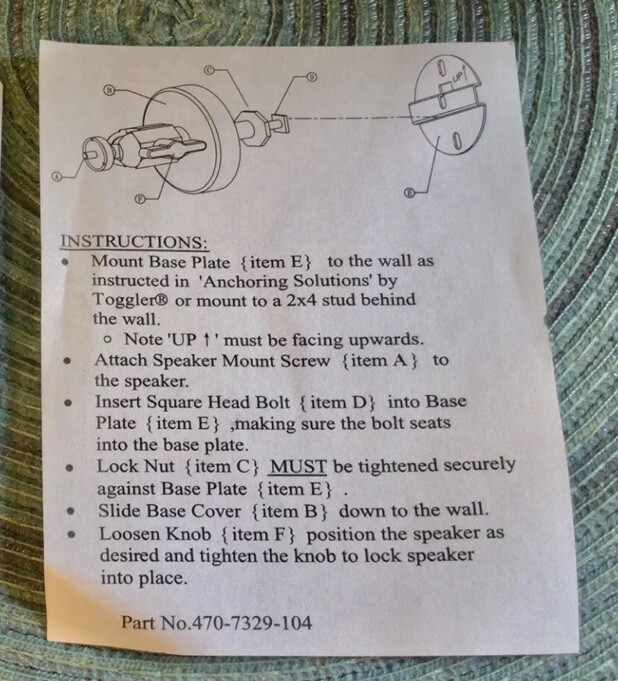 B
C
D
UP↑
A
F
E
INSTRUCTIONS:
• Mount Base Plate {item E} to the wall as
instructed in 'Anchoring Solutions' by
Toggler® or mount to a 2x4 stud behind
the wall.
o Note 'UP ↑' must be facing upwards.
• Attach Speaker Mount Screw {item A} to
the speaker.
• Insert Square Head Bolt {item D} into Base
Plate {item E} ,making sure the bolt seats
into the base plate.
• Lock Nut {item C} MUST be tightened securely
against Base Plate {item E} .
• Slide Base Cover {item B} down to the wall.
• Loosen Knob {item F} position the speaker as
desired and tighten the knob to lock speaker
into place.
Part No.470-7329-104